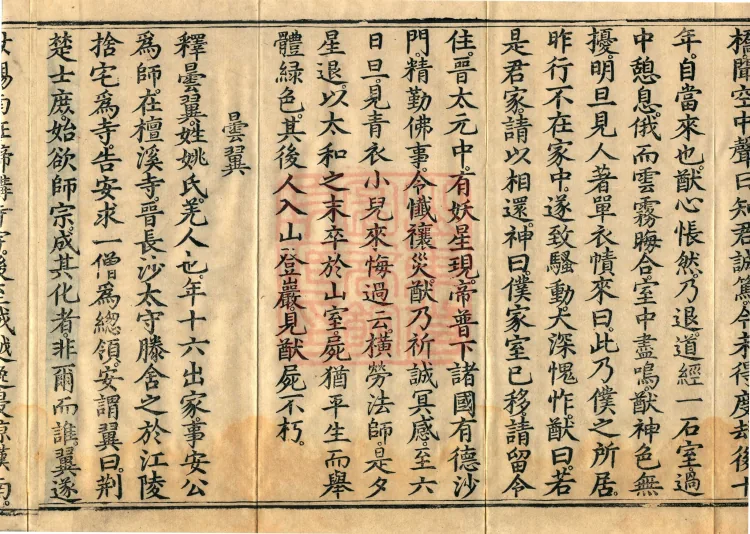 橋聞空中聲曰知君誠篤今未得度却後十
年。自當來也。猷心悵然。乃退。道經一石室。過
中憩息。俄而雲霧晦合。室中盡鳴。猷神色無
擾。明旦見人著單衣幘來曰。此乃僕之所居。
昨行不在家中。遂致騷動。大深愧怍。猷曰。若
是君家。請以相還。神曰。僕家室已移請留令
住。晉太元中。有妖星現。帝普下諸國有德沙
門。精勤佛事。令懺禳災。猷乃祈誠冥感。至六
日旦。見青衣小兒來悔過云。橫勞法師。是夕
星退。以太和之末卒於山室。屍猶平生而舉
體綠色。其後人入山登巖。見猷屍不朽。
曇翼
釋曇翼。姓姚氏。羌人也。年十六出家。事安公
為師。在檀溪寺。晉長沙太守滕舍之於江陵
捨宅為寺。告安求一僧為總領。安謂翼曰。荆
楚士庶。始欲師宗。成其化者。非爾而誰。翼遂